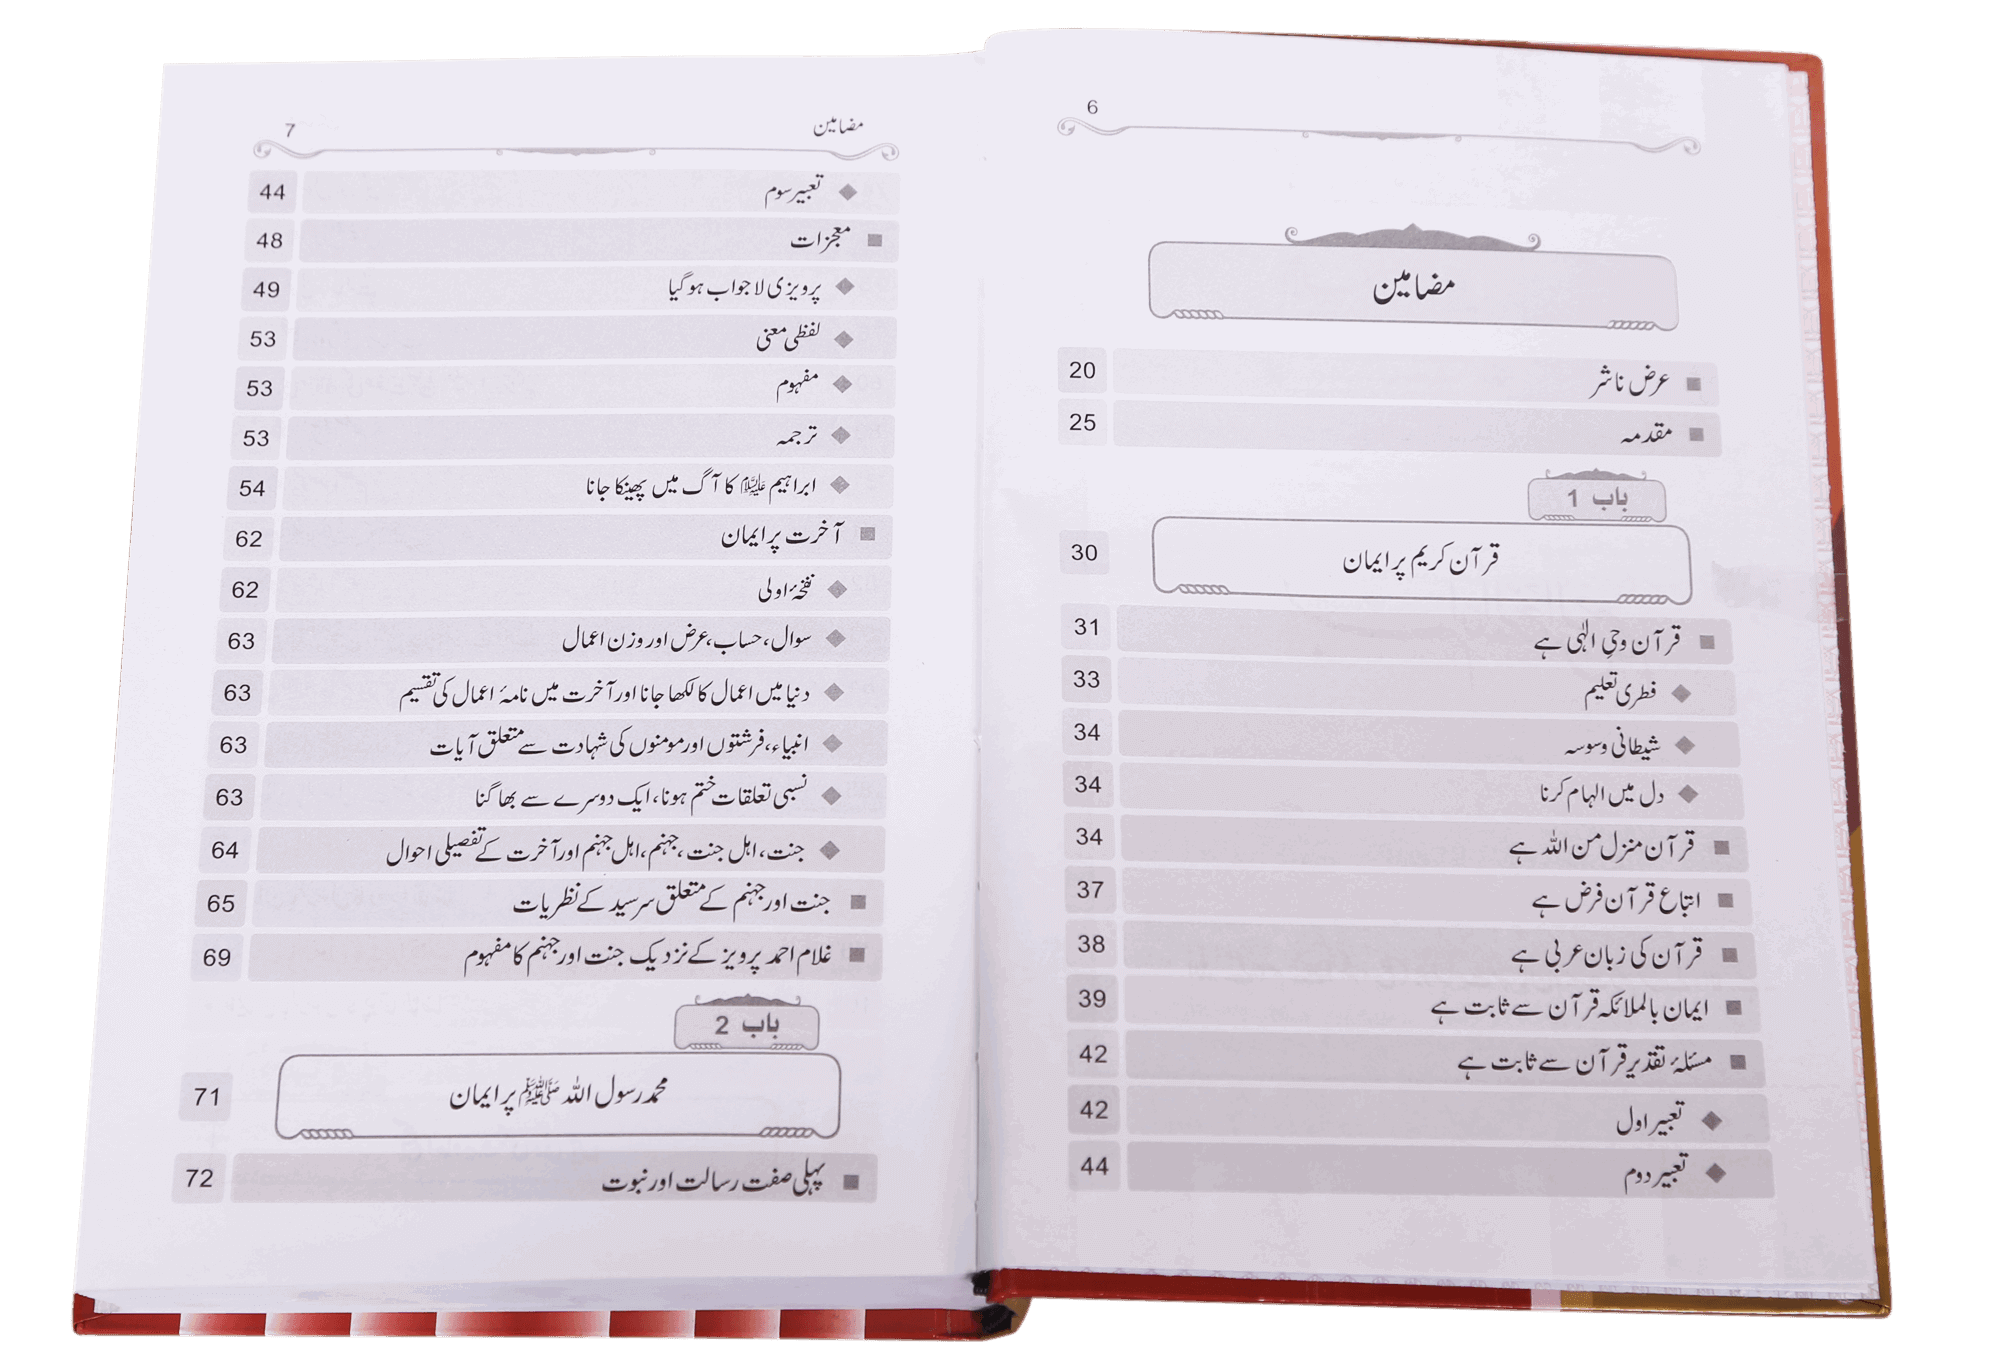 6
مضامین
عرض ناشر 20
مقدمہ 25
باب 1
قرآن کریم پر ایمان 30
قرآن وحیِ الٰہی ہے 31
فطری تعلیم 33
شیطانی وسوسہ 34
دل میں الہام کرنا 34
قرآن منزل من اللہ ہے 34
اتباع قرآن فرض ہے 37
قرآن کی زبان عربی ہے 38
ایمان بالملائکہ قرآن سے ثابت ہے 39
مسئلۂ تقدیر قرآن سے ثابت ہے 42
تعبیر اول 42
تعبیر دوم 44
مضامین 7
تعبیر سوم 44
معجزات 48
پرویزی لا جواب ہو گیا 49
لفظی معنی 53
مفہوم 53
ترجمہ 53
ابراہیم علیہ السلام کا آگ میں پھینکا جانا 54
آخرت پر ایمان 62
نفخۂ اولی 62
سوال، حساب، عرض اور وزن اعمال 63
دنیا میں اعمال کا لکھا جانا اور آخرت میں نامۂ اعمال کی تقسیم 63
انبیاء، فرشتوں اور مومنوں کی شہادت سے متعلق آیات 63
نسبی تعلقات ختم ہونا، ایک دوسرے سے بھاگنا 63
جنت، اہل جنت، جہنم، اہل جہنم اور آخرت کے تفصیلی احوال 64
جنت اور جہنم کے متعلق سرسید کے نظریات 65
غلام احمد پرویز کے نزدیک جنت اور جہنم کا مفہوم 69
باب 2
محمد رسول اللہ ﷺ پر ایمان 71
پہلی صفت رسالت اور نبوت 72